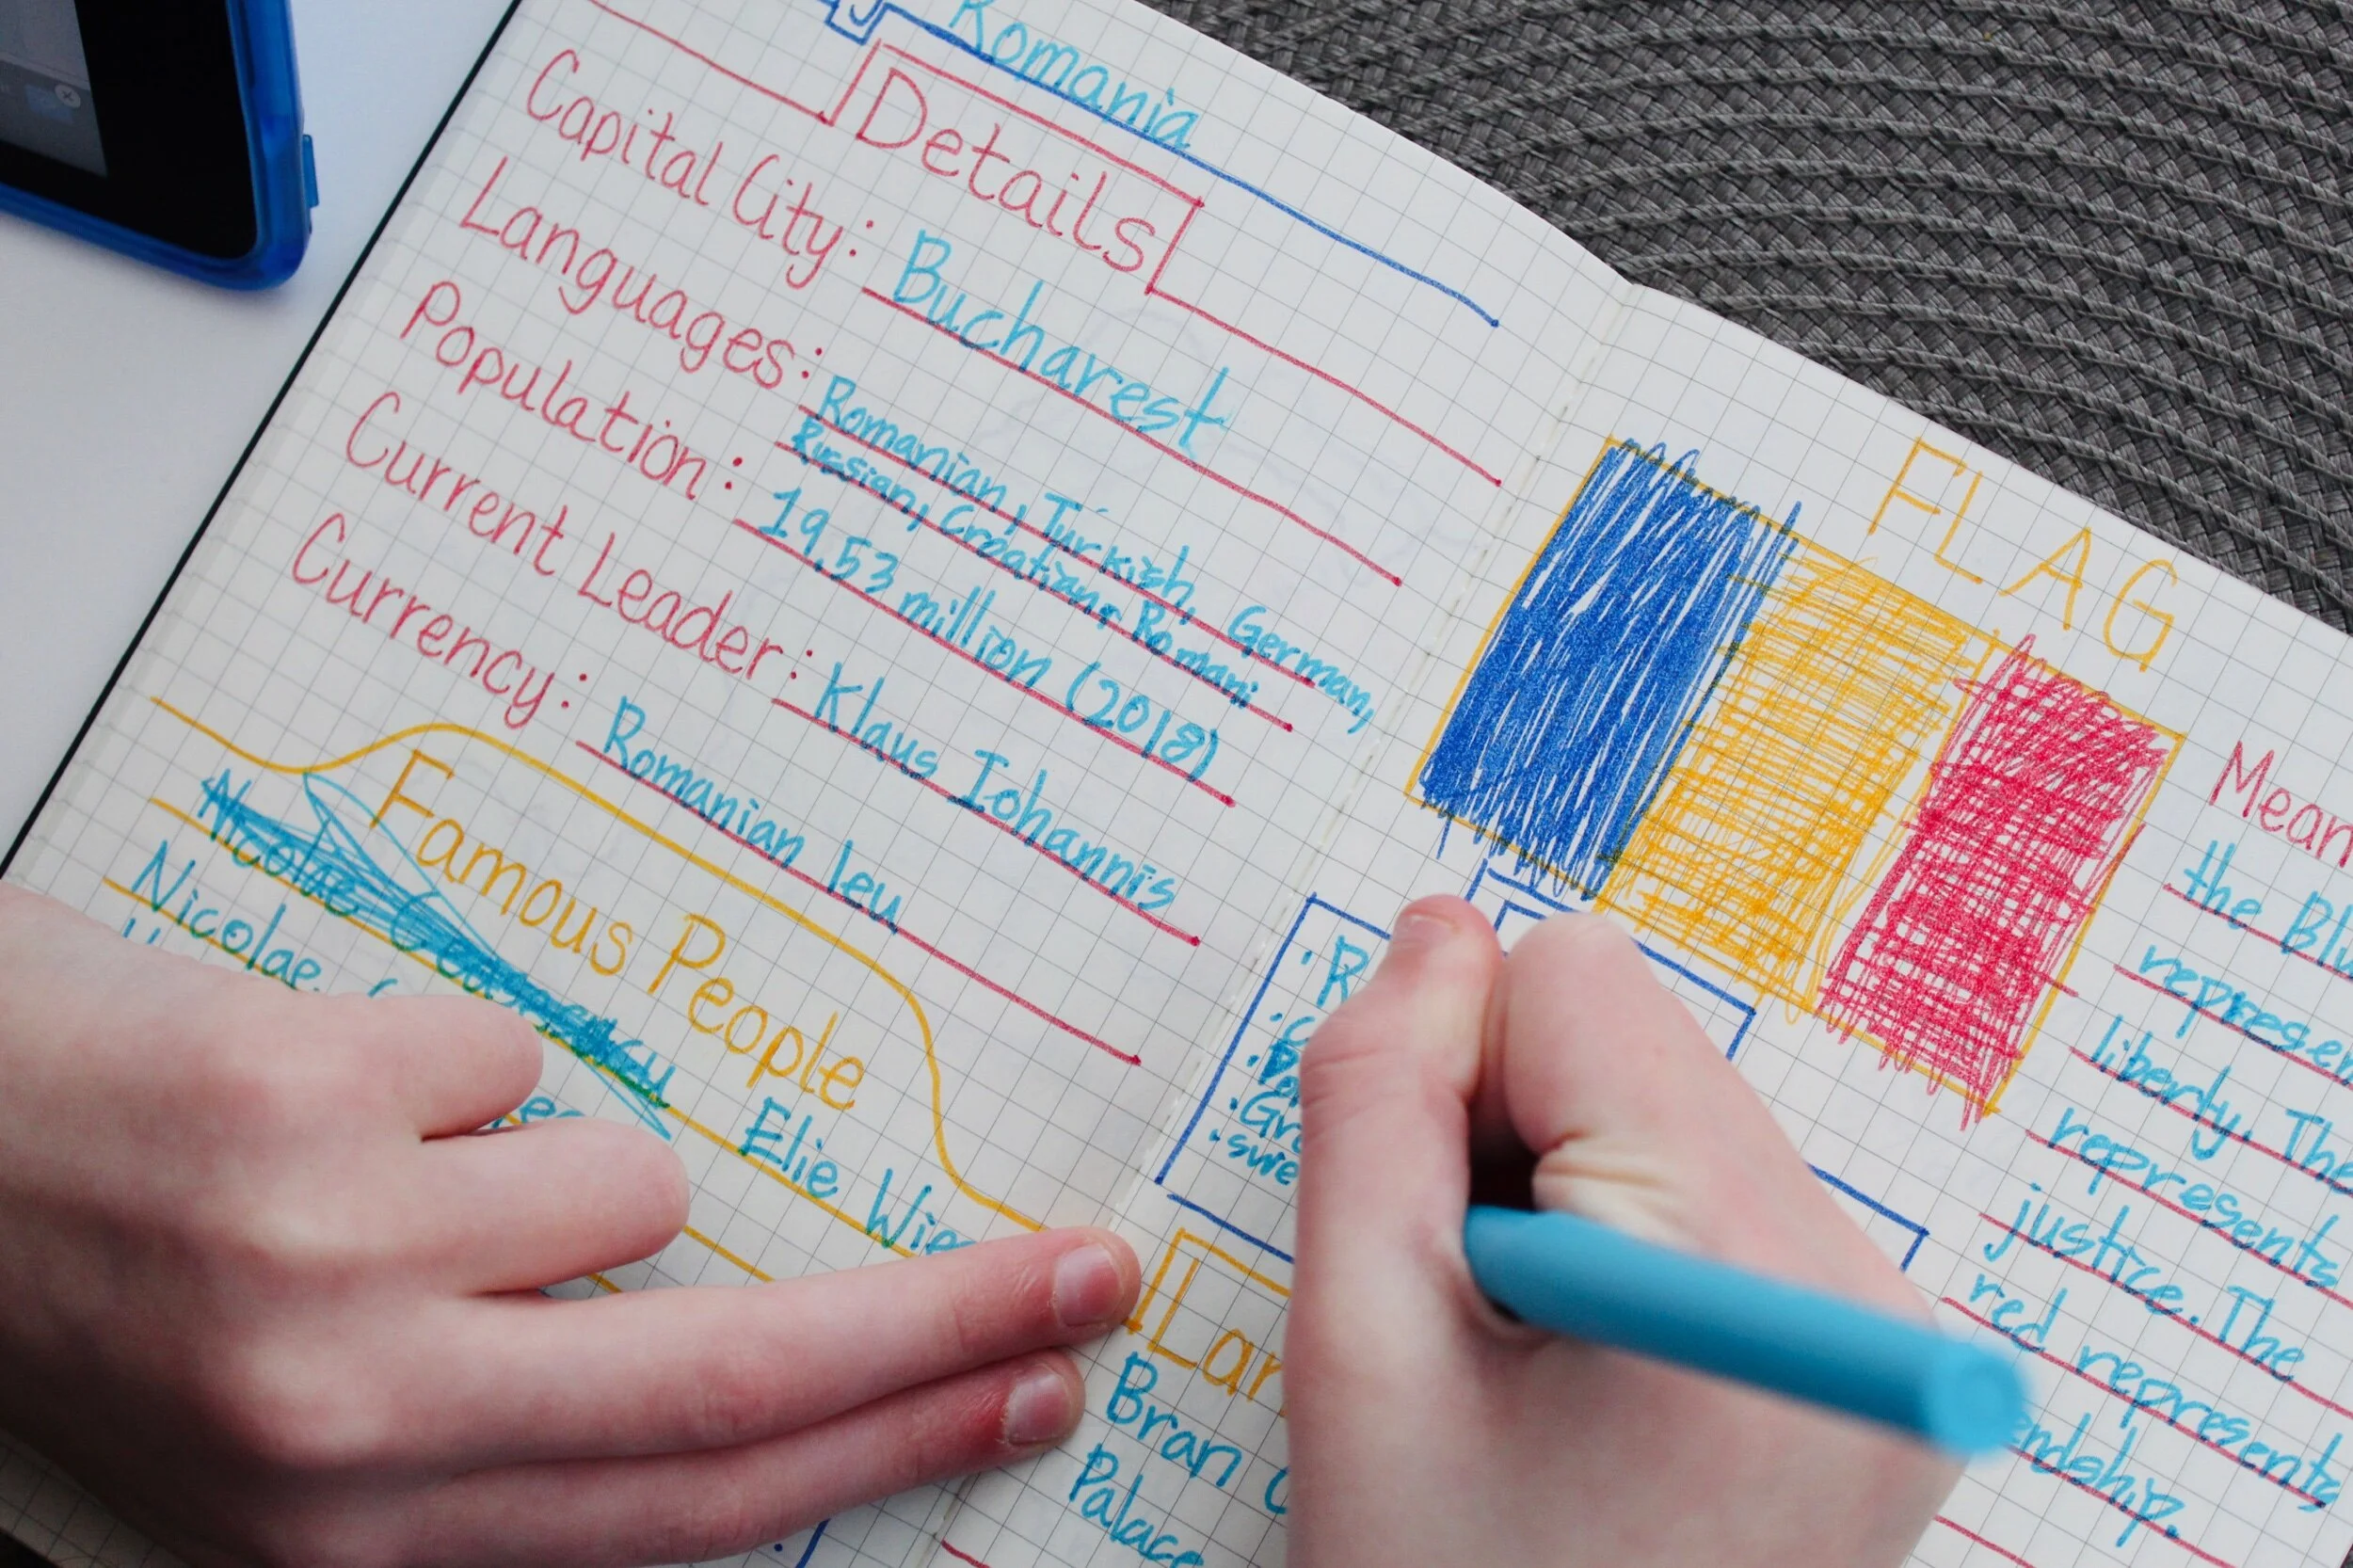 Romania
Details
Capital City: Bucharest
Languages: Romanian, Turkish, German,
Russian, Croatian, Romani
Population: 19.53 million (2018)
Current Leader: Klaus Iohannis
Currency: Romanian leu
Famous People
Nicolae
Elie
FLAG
the
liberty. The
represents
justice. The
red represents
Bran
Palace